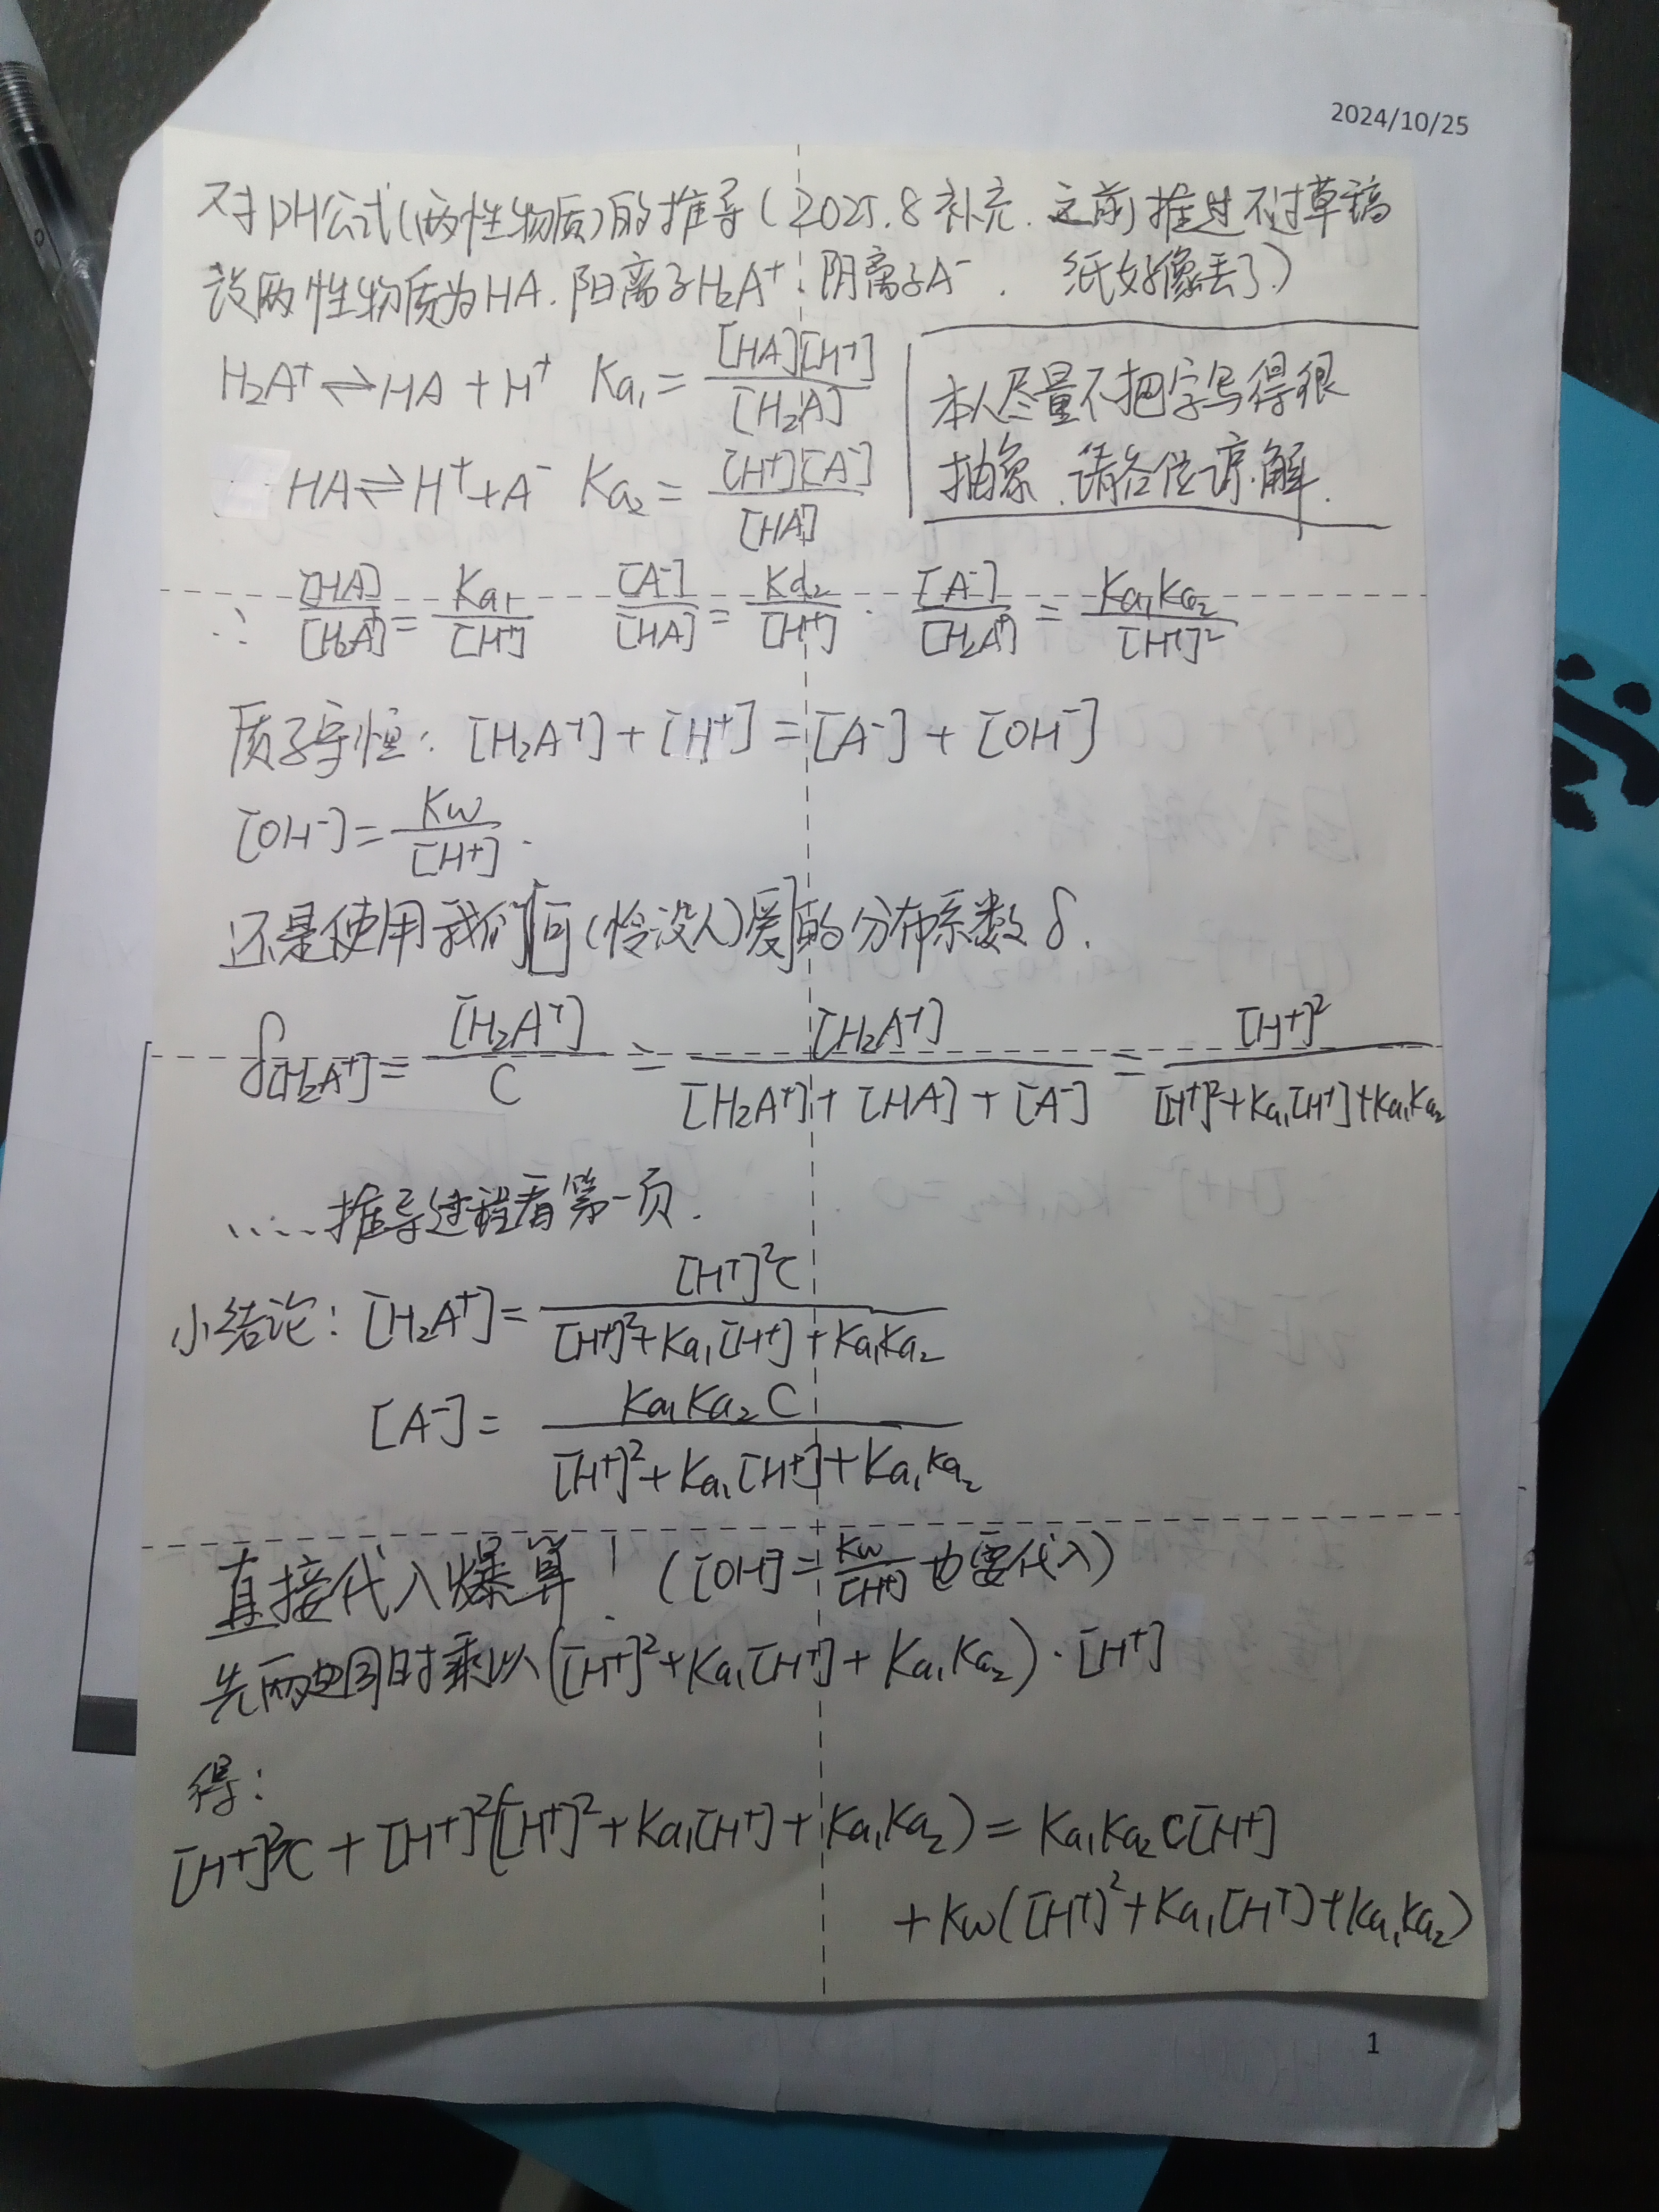 2024/10/25
对pH公式(两性物质)的推导(2025.8补充.之前推过不过草稿
设两性物质为HA.阳离子H₂A⁺.阴离子A⁻. 纸好像丢了)
H₂A⁺⇌HA+H⁺ Ka₁=[HA][H⁺]/[H₂A]
本人尽量不把字写得很
抽象.请各位谅解.
HA⇌H⁺+A⁻ Ka₂=[H⁺][A⁻]/[HA]
∴ [HA]/[H₂A⁺]=Ka₁/[H⁺] [A⁻]/[HA]=Ka₂/[H⁺]. [A⁻]/[H₂A⁺]=Ka₁Ka₂/[H⁺]²
质子守恒: [H₂A⁺]+[H⁺]=[A⁻]+[OH⁻]
[OH⁻]=Kw/[H⁺].
还是使用我们[可(怜没人)爱]的分布系数δ.
δ[H₂A⁺]=[H₂A⁺]/C=[H₂A⁺]/([H₂A⁺]+[HA]+[A⁻])=[H⁺]²/([H⁺]²+Ka₁[H⁺]+Ka₁Ka₂)
.....推导过程看第一页.
小结论: [H₂A⁺]=[H⁺]²C/([H⁺]²+Ka₁[H⁺]+Ka₁Ka₂)
[A⁻]=Ka₁Ka₂C/([H⁺]²+Ka₁[H⁺]+Ka₁Ka₂)
直接代入爆算! ([OH⁻]=Kw/[H⁺]也要代入)
先两边同时乘以([H⁺]²+Ka₁[H⁺]+Ka₁Ka₂)·[H⁺]
得:
[H⁺]³C+[H⁺]²([H⁺]²+Ka₁[H⁺]+Ka₁Ka₂)=Ka₁Ka₂C[H⁺]
+Kw([H⁺]²+Ka₁[H⁺]+Ka₁Ka₂)
1